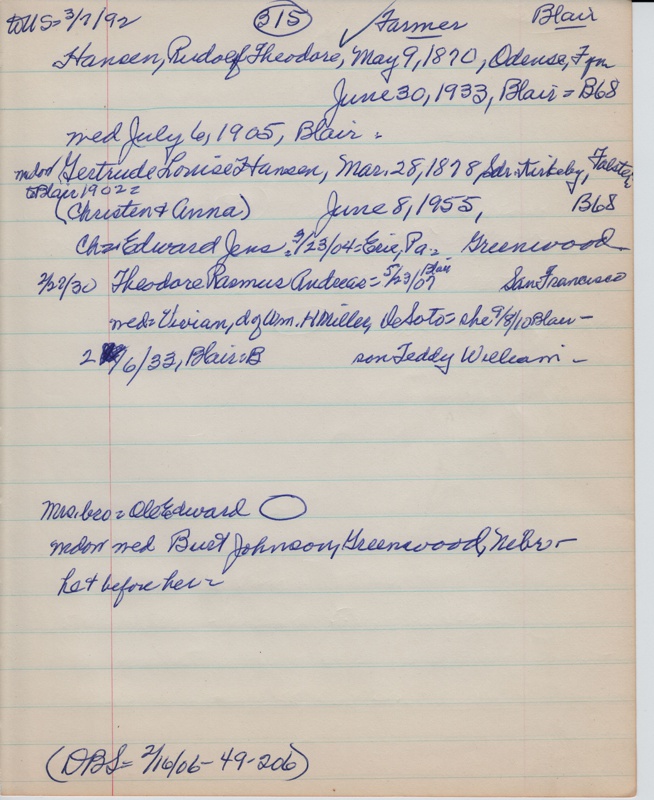 to US = 3/7/92 315 ✓ Farmer Blair
Hansen, Rudolf Theodore, May 9, 1870, Odense, Fyn
June 30, 1933, Blair = B68
med July 6, 1905, Blair =
Gertrude Louise Hansen, Mar. 28, 1878, Sdr. Kirkeby, Falster
to Blair 1902 =
(Christen & Anna) June 8, 1955, B68
Ch = Edward Jens = 3/23/04 = Erie, Pa = Greenwood
2/27/30 Theodore Rasmus Andreas = 5/23/07 Blair San Francisco
med = Vivian, d of Wm. H Miller, DeSoto = she 9/8/10 Blair –
2 /6/33, Blair = B son Teddy William –
Mrs. bro = Ole Edward
med Burt Johnson, Greenwood, Nebr –
he + before her =
(DBS = 2/16/06 - 49 - 206)